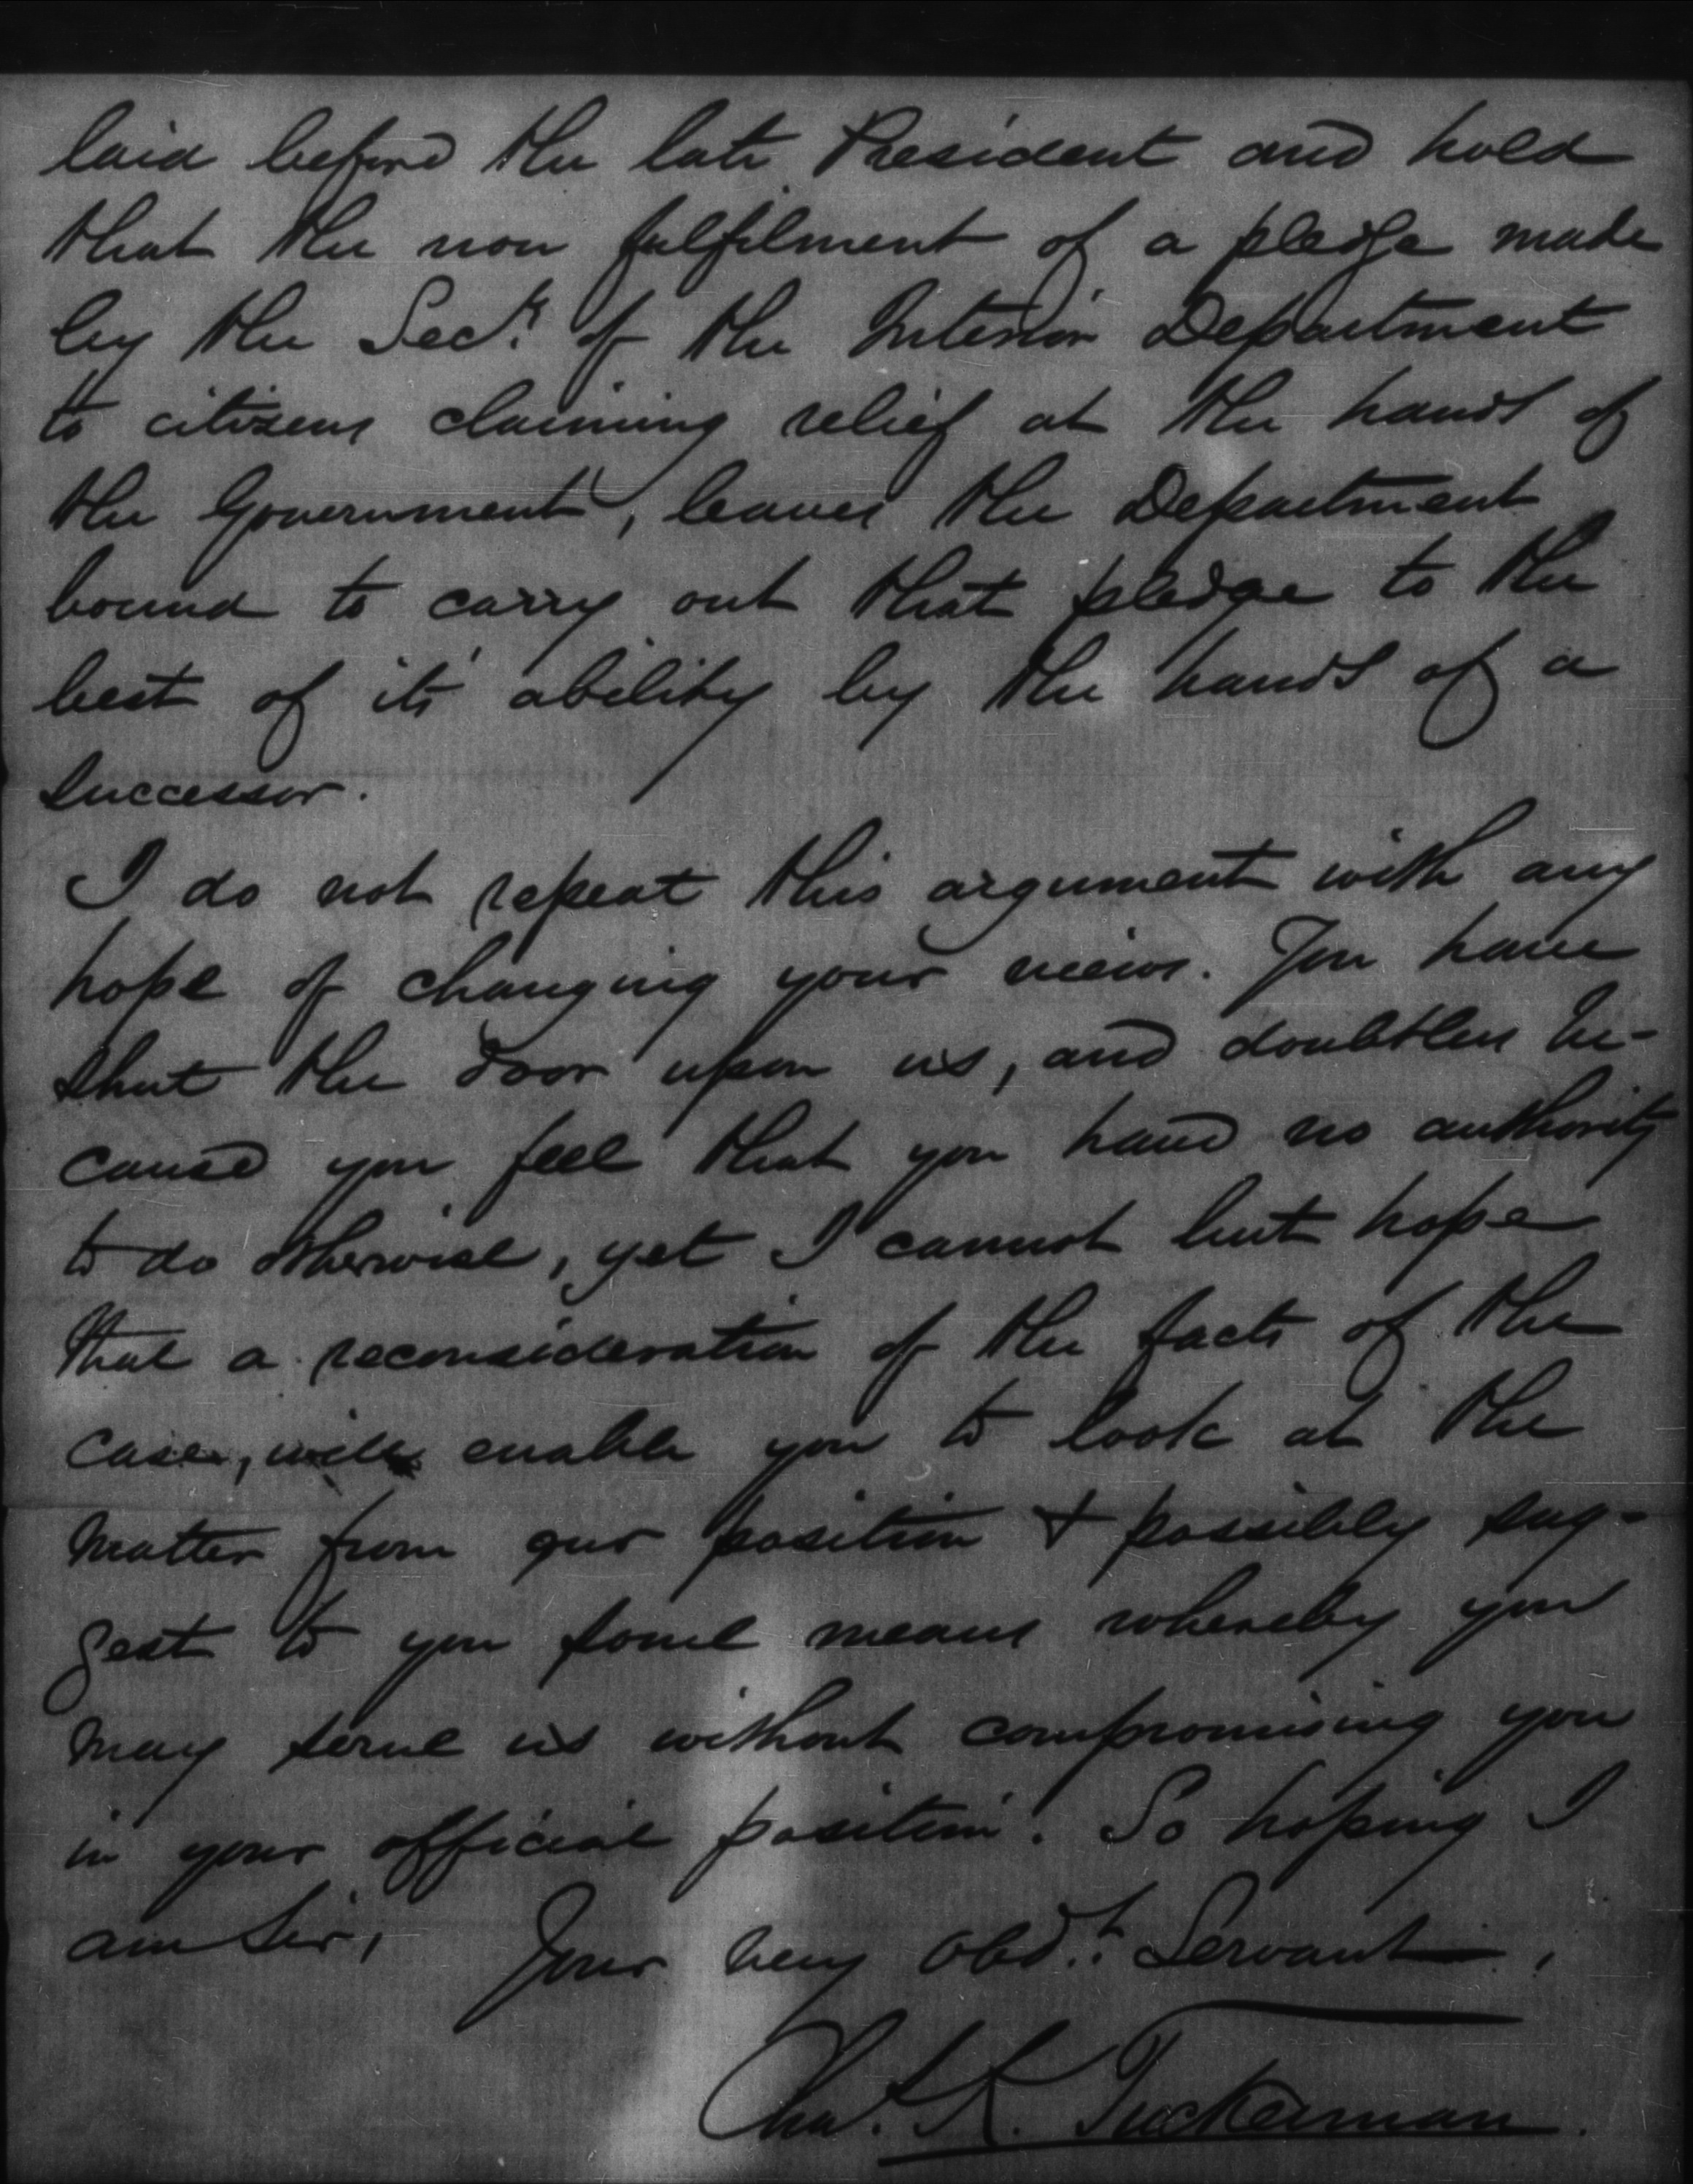 laid before the late President and hold
that the non fulfilment of a pledge made
by the Secy. of the Interior Department
to citizens claiming relief at the hands of
the Government, leaves the Department
bound to carry out that pledge to the
best of its ability by the hands of a
successor.
I do not repeat this argument with any
hope of changing your views. You have
shut the door upon us, and doubtless be-
cause you feel that you have no authority
to do otherwise, yet I cannot but hope
that a reconsideration of the facts of the
case, will enable you to look at the
matter from our position & possibly sug-
gest to you some means whereby you
may serve us without compromising you
in your official position. So hoping I
am Sir,
Your very Obdt. Servant,
Chas. K. Tuckerman.